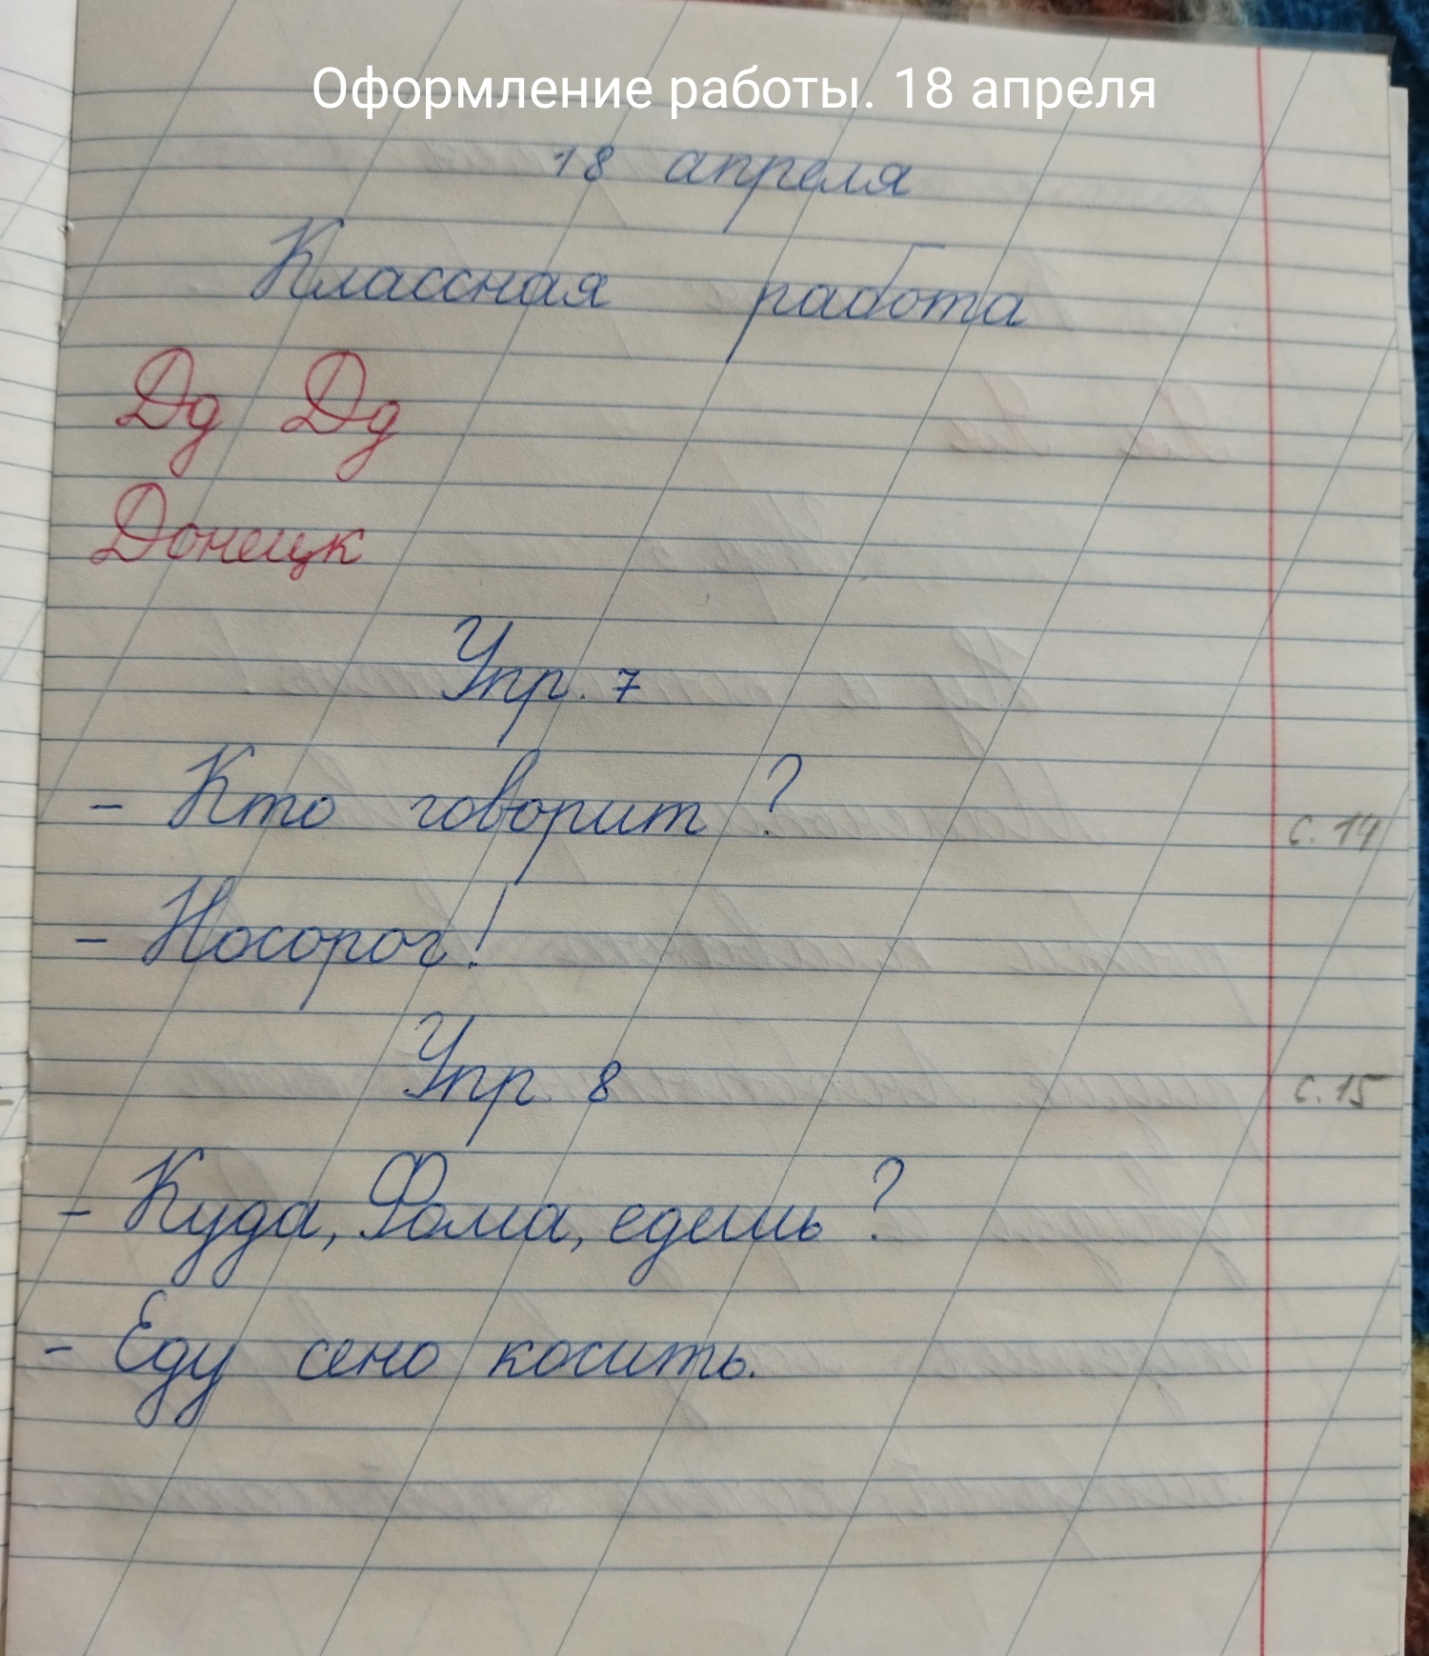 Оформление работы. 18 апреля
18 апреля
Классная работа
Дд Дд
Донецк
Упр. 7
- Кто говорит?
с. 14
- Носорог!
Упр. 8
с. 15
- Куда, Фома, едешь?
- Еду сено косить.